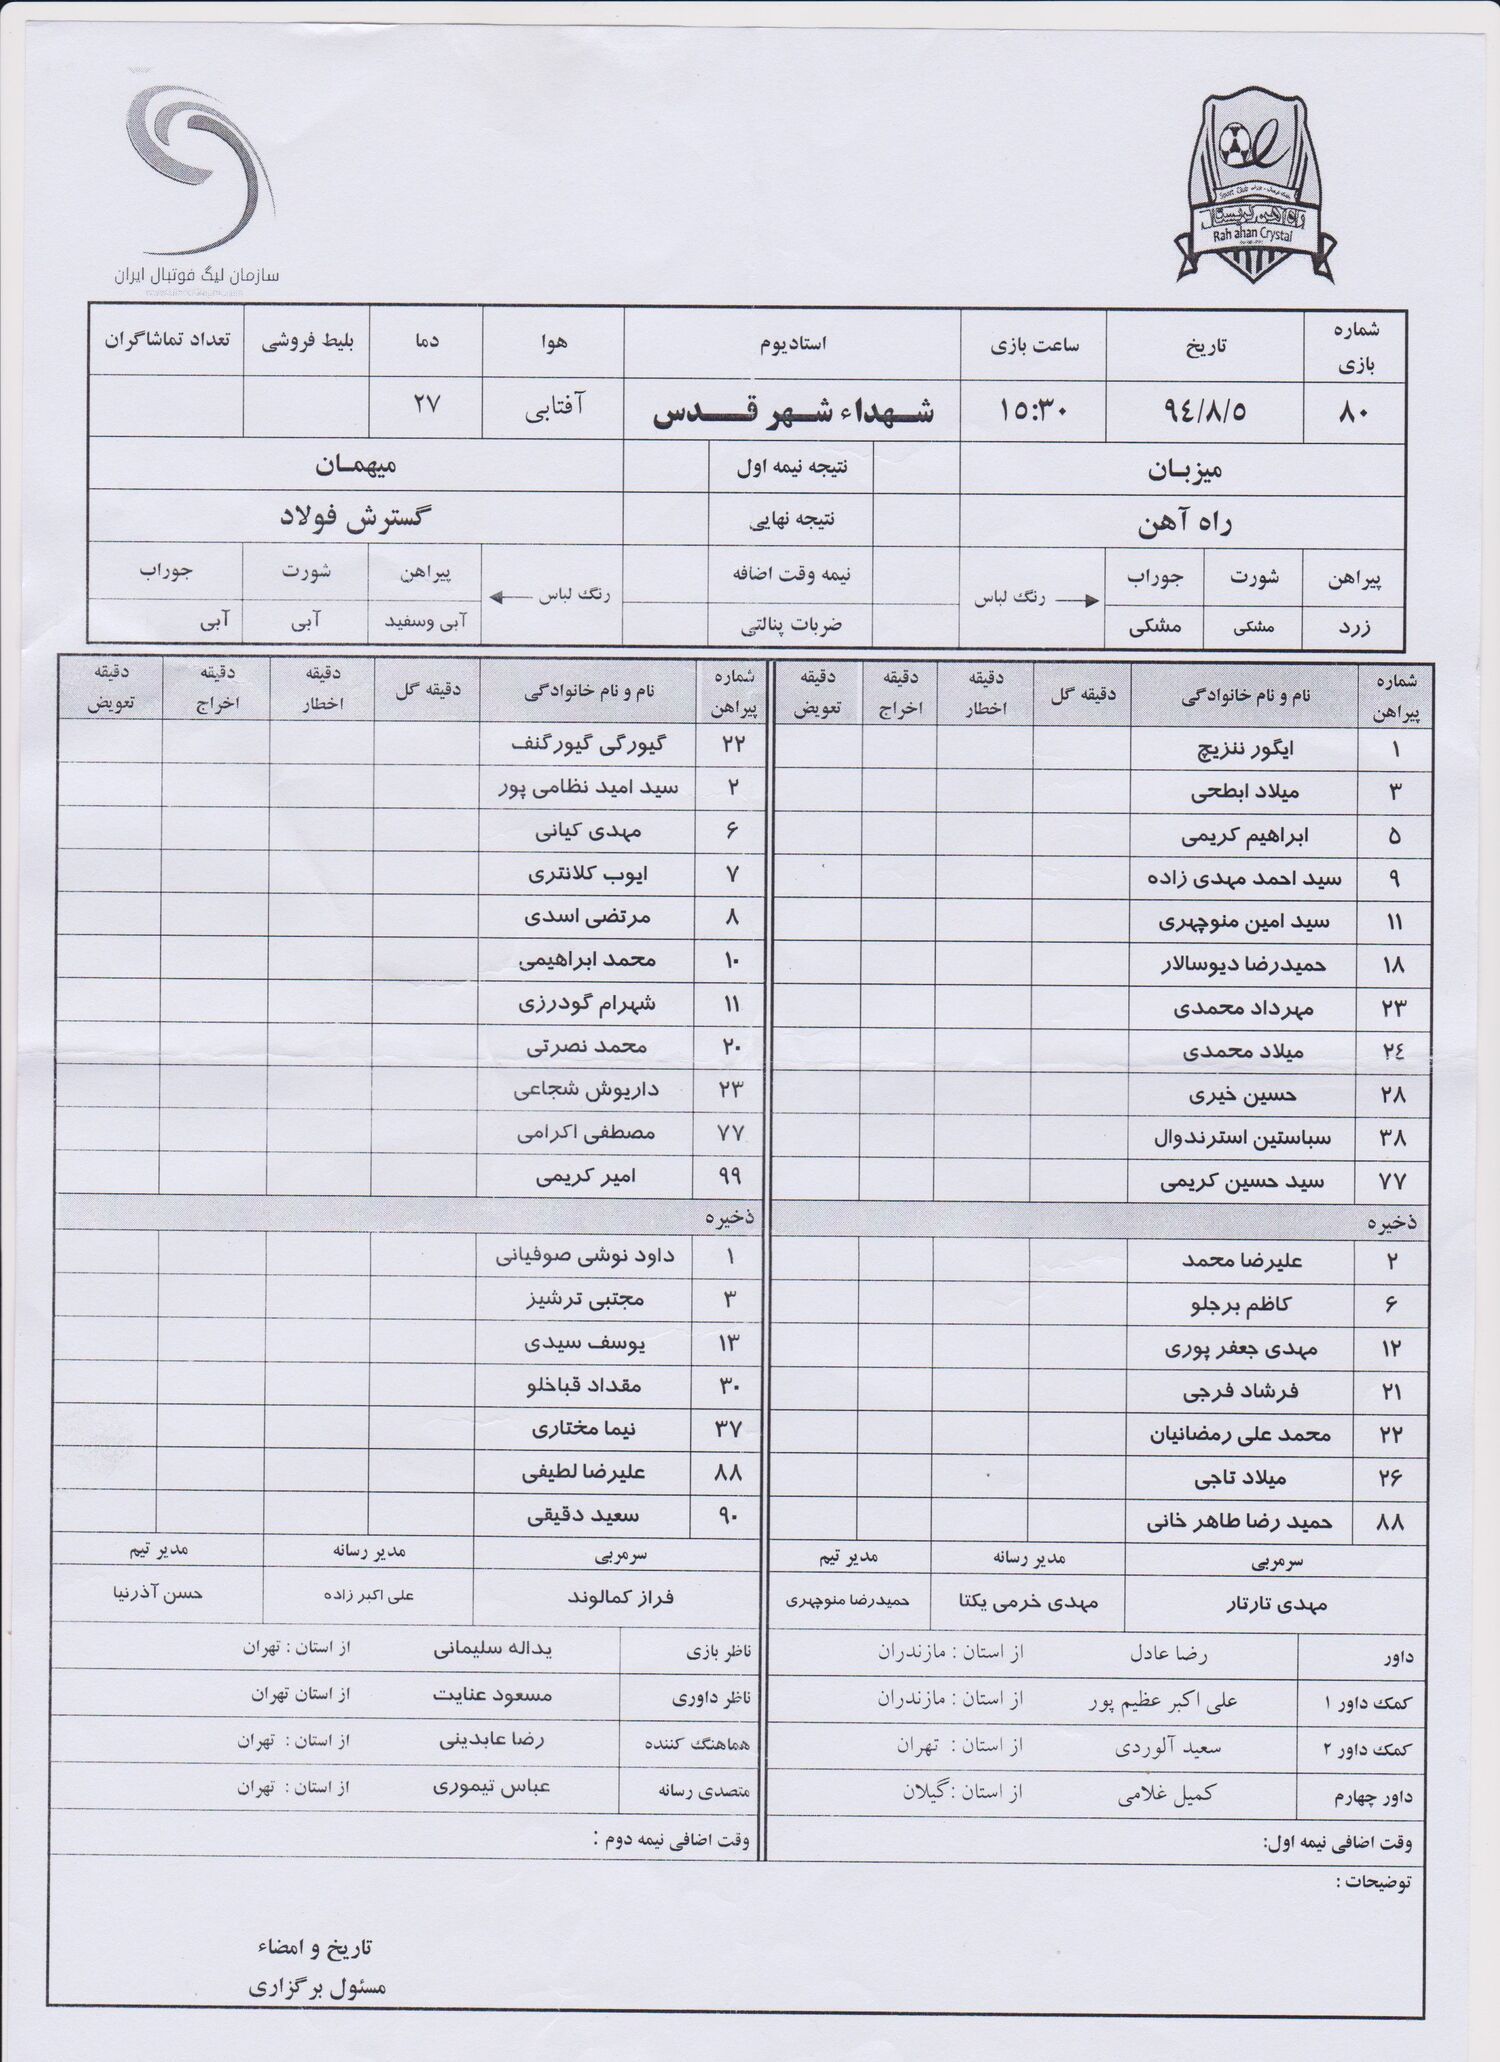 سازمان لیگ فوتبال ایران
Sport Club
راه آهن کریستال
Rah ahan Crystal
شماره بازی	تاریخ	ساعت بازی	استادیوم	هوا	دما	بلیط فروشی	تعداد تماشاگران
۸۰	۹٤/۸/۵	۱۵:۳۰	شهداء شهر قدس	آفتابی	۲۷
میزبان	نتیجه نیمه اول	میهمان
راه آهن	نتیجه نهایی	گسترش فولاد
پیراهن	شورت	جوراب	رنگ لباس	نیمه وقت اضافه	رنگ لباس	پیراهن	شورت	جوراب
زرد	مشکی	مشکی	ضربات پنالتی	آبی وسفید	آبی	آبی
شماره پیراهن	نام و نام خانوادگی	دقیقه گل	دقیقه اخطار	دقیقه اخراج	دقیقه تعویض	شماره پیراهن	نام و نام خانوادگی	دقیقه گل	دقیقه اخطار	دقیقه اخراج	دقیقه تعویض
۱	ایگور ننزیچ	۲۲	گیورگی گیورگنف
۳	میلاد ابطحی	۲	سید امید نظامی پور
۵	ابراهیم کریمی	۶	مهدی کیانی
۹	سید احمد مهدی زاده	۷	ایوب کلانتری
۱۱	سید امین منوچهری	۸	مرتضی اسدی
۱۸	حمیدرضا دیوسالار	۱۰	محمد ابراهیمی
۲۳	مهرداد محمدی	۱۱	شهرام گودرزی
۲٤	میلاد محمدی	۲۰	محمد نصرتی
۲۸	حسین خیری	۲۳	داریوش شجاعی
۳۸	سباستین استرندوال	۷۷	مصطفی اکرامی
۷۷	سید حسین کریمی	۹۹	امیر کریمی
ذخیره	ذخیره
۲	علیرضا محمد	۱	داود نوشی صوفیانی
۶	کاظم برجلو	۳	مجتبی ترشیز
۱۲	مهدی جعفر پوری	۱۳	یوسف سیدی
۲۱	فرشاد فرجی	۳۰	مقداد قباخلو
۲۲	محمد علی رمضانیان	۳۷	نیما مختاری
۲۶	میلاد تاجی	۸۸	علیرضا لطیفی
۸۸	حمید رضا طاهر خانی	۹۰	سعید دقیقی
سرمربی	مدیر رسانه	مدیر تیم	سرمربی	مدیر رسانه	مدیر تیم
مهدی تارتار	مهدی خرمی یکتا	حمیدرضا منوچهری	فراز کمالوند	علی اکبر زاده	حسن آذرنیا
داور	رضا عادل	از استان : مازندران	ناظر بازی	یداله سلیمانی	از استان : تهران
کمک داور ۱	علی اکبر عظیم پور	از استان : مازندران	ناظر داوری	مسعود عنایت	از استان تهران
کمک داور ۲	سعید آلوردی	از استان : تهران	هماهنگ کننده	رضا عابدینی	از استان : تهران
داور چهارم	کمیل غلامی	از استان :گیلان	متصدی رسانه	عباس تیموری	از استان : تهران
وقت اضافی نیمه اول:	وقت اضافی نیمه دوم :
توضیحات :
تاریخ و امضاء
مسئول برگزاری